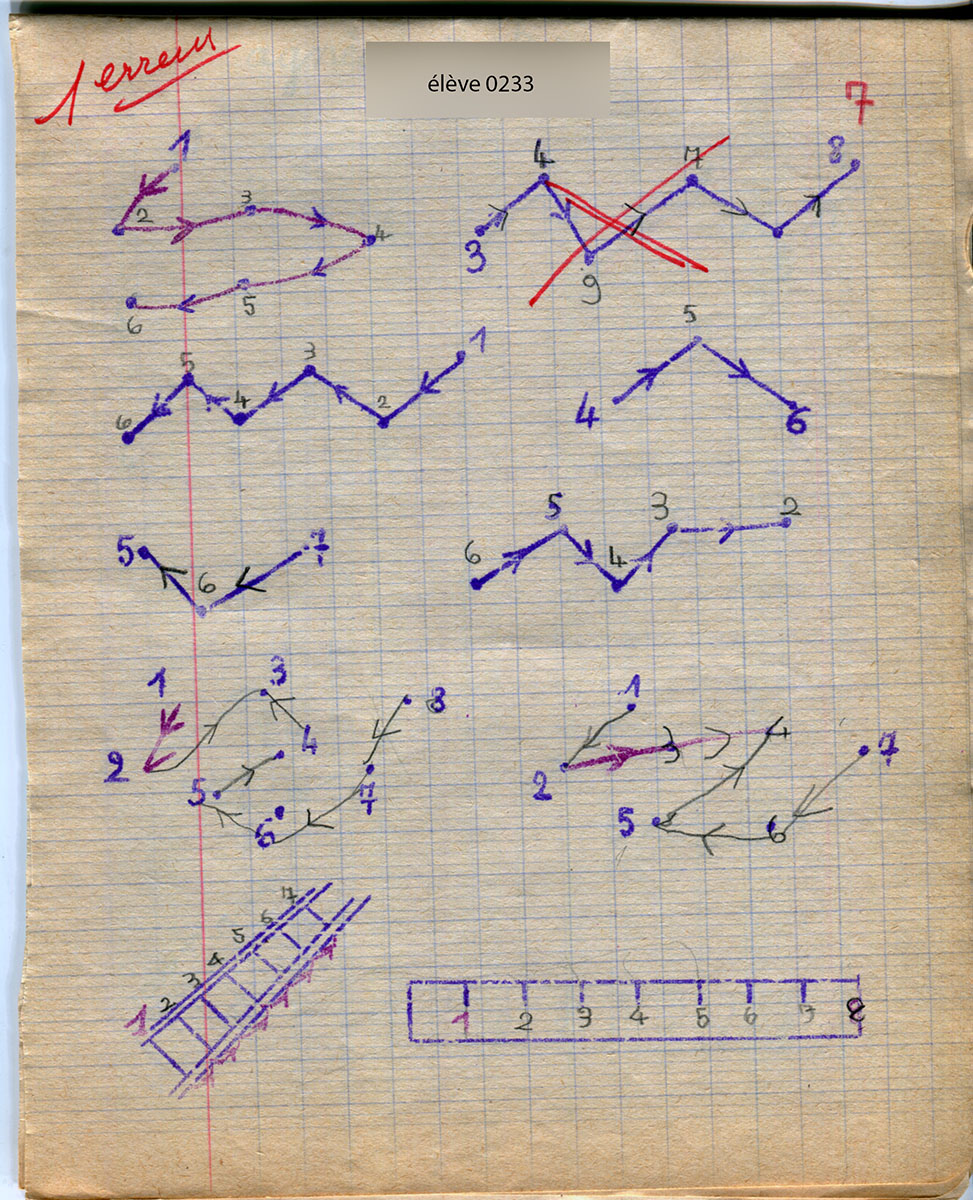 1 erreur
élève 0233
7
1
2
3
4
5
6
3
4
9
7
8
1
2
3
4
5
6
4
5
6
5
6
7
6
5
4
3
2
1
2
3
4
5
6
7
8
1
2
3
4
5
6
7
1
2
3
4
5
6
7
1 2 3 4 5 6 7 8